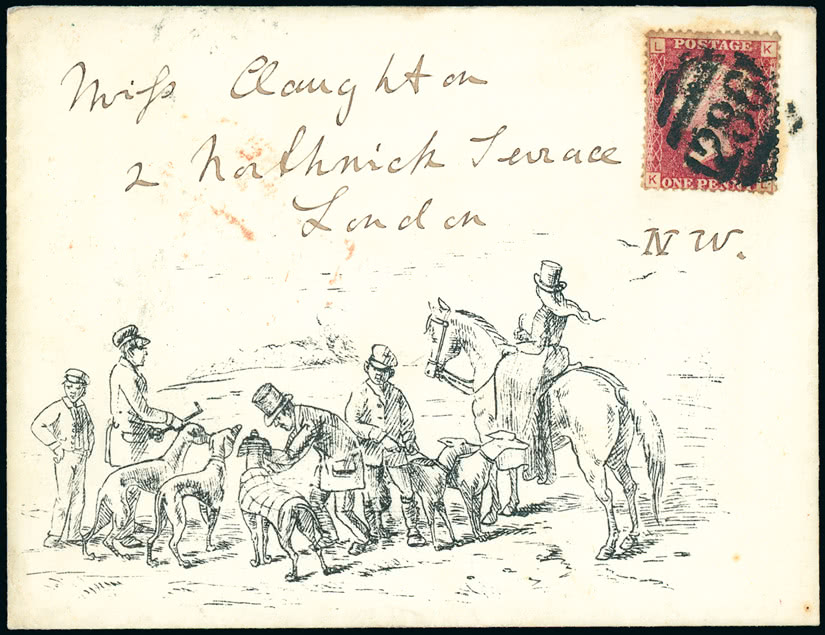 Miss Claughton
2 Northwick Terrace
London
N W.
L POSTAGE K
286
K ONE PENNY L